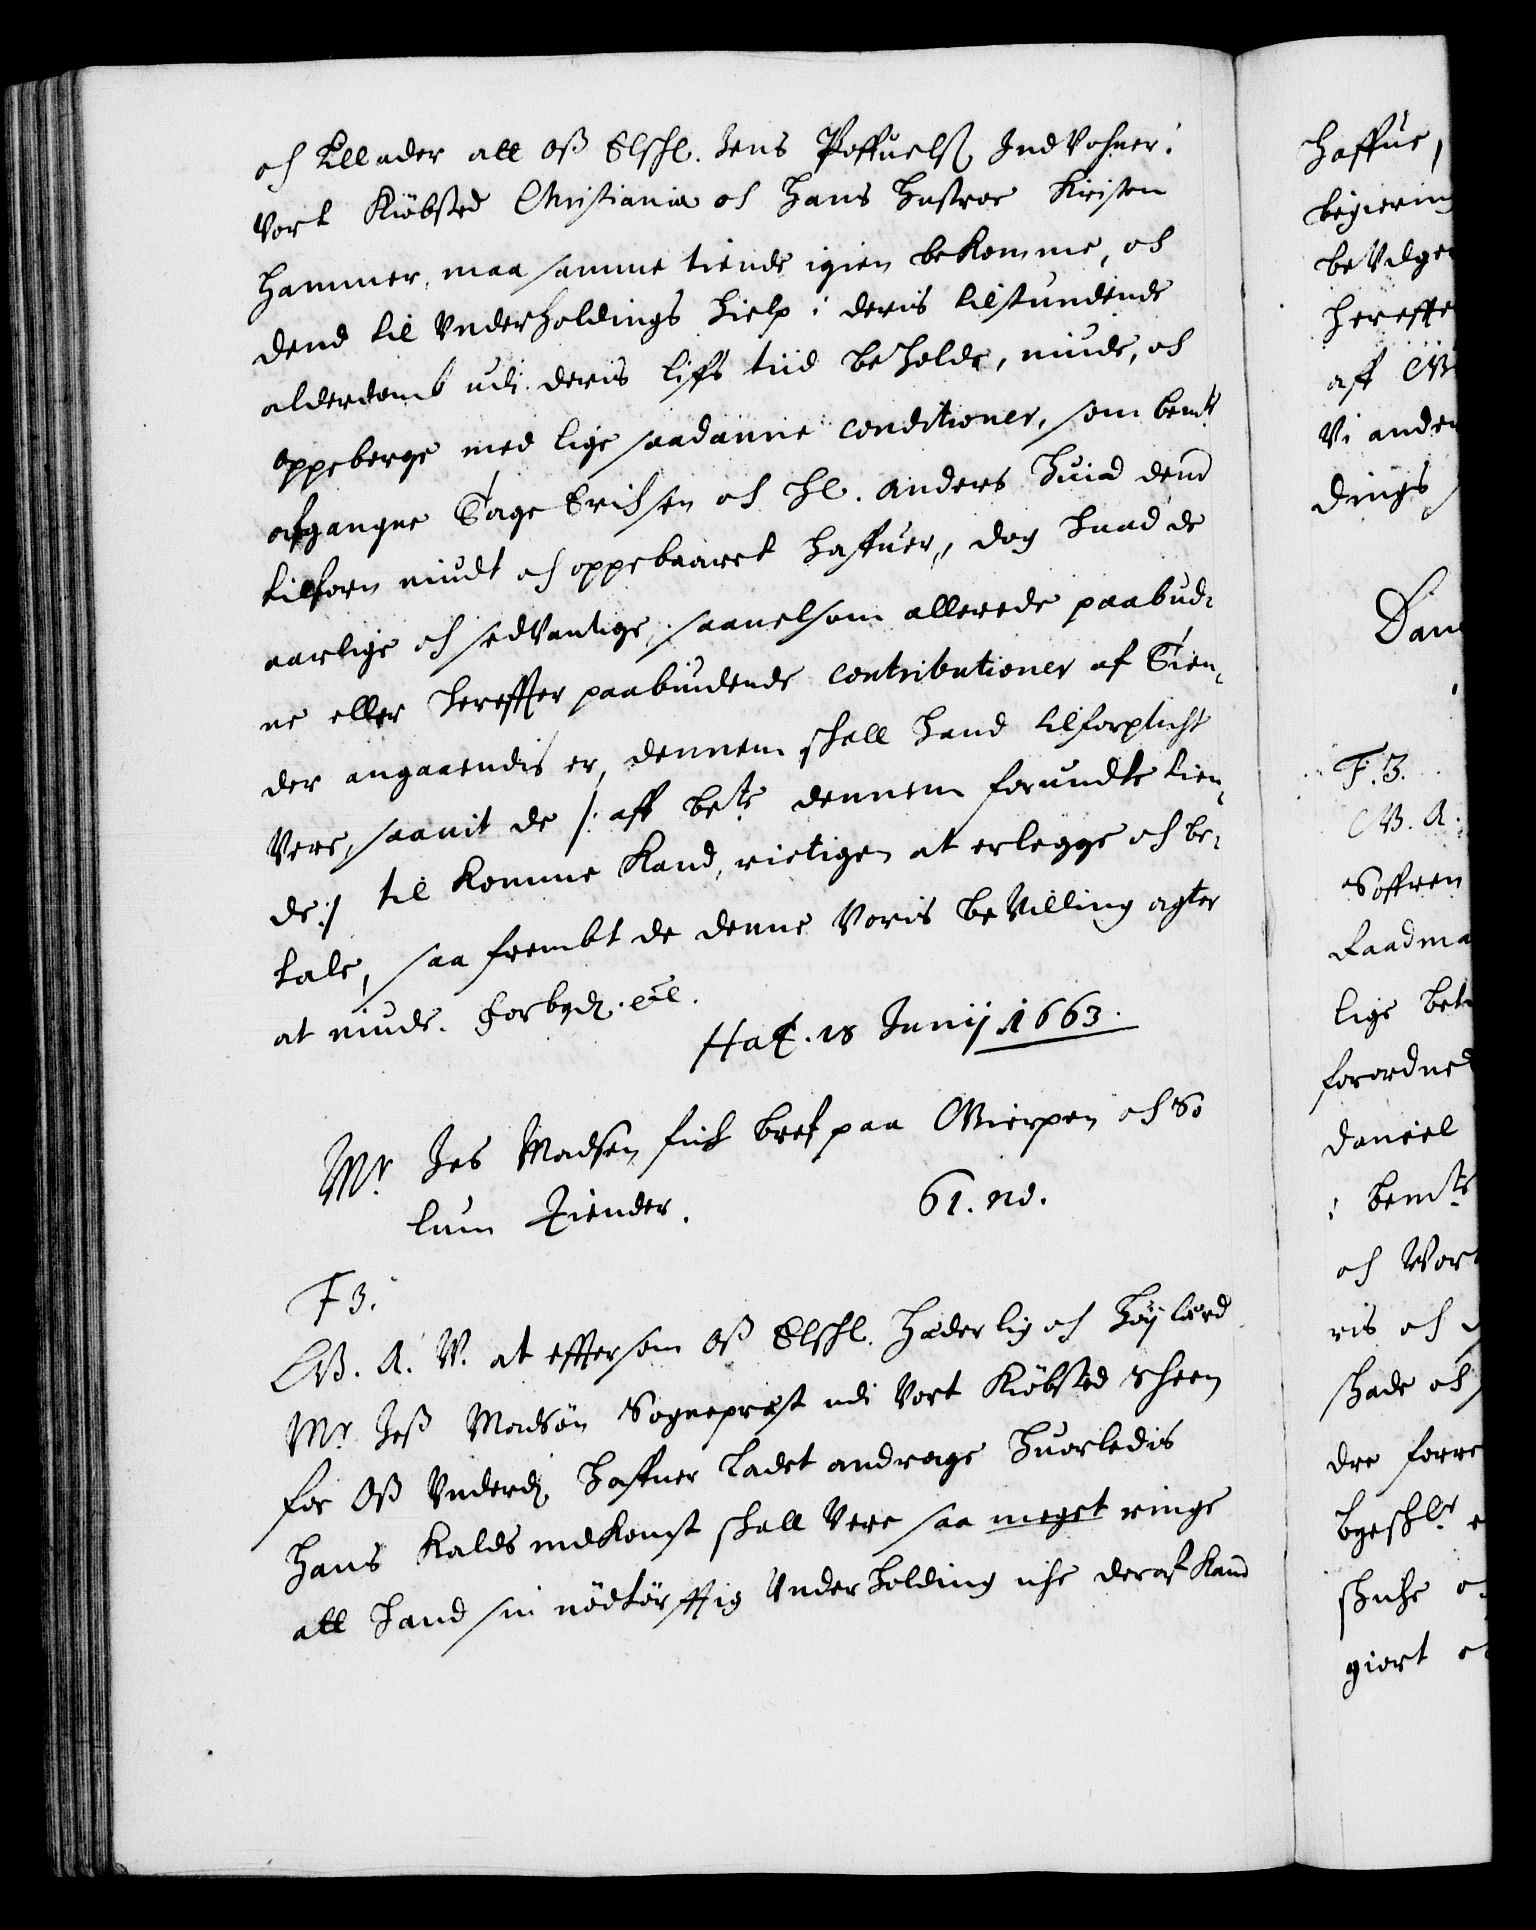 och tillader att oß Elschl. Jens Poffuels. Indvohner i
Vort Kiöbsted Christiania och Hans Hustroe Kirsten
Hammer, maa samme tiende igien bekomme, och
dend til Underholdings hielp i deris tilstundende
alderdomb udi deris lifs tiid beholde, niude, och
oppeberge med lige saadanne conditioner, som bemte
afgangne Tage Erichsen och Hl. Anders Huid dend
tilforn niudt och oppebaaret haffuer, dog huad de
aarlige och sedvantige, saauelsom allerede paabud-
ne eller hereffter paabuidende contributioner af Tien-
der angaaendis er, dennem skall hand tilforplicht
Vere, saauit de /: aff bete dennem forundte tien-
de :/ til komme kand, rietigen at erlegge och be-
tale, saa frembt de denne Voris bevilling agter
at niude. Forbydz. etc.
Haf. 18 Junij 1663.
Mr. Jes Madsen fich bref paa Gierpen och So
lum Tiender. 61. nd.
F 3.
G. A. V. at effter som oß Elschl. Hæderlig och Höylærd
Mr. Jeß Madsön Sogneprest udi Vort Kiöbsted Scheen
for Oß Underdz haffuer ladet andrage huorledis
hans kalds indkomst skall Vere saa meget ringe
att hand sin nödtörfftig Underholding iche deraf kand
haffue,
begiering
beVilget
hereffte
aff
Vi ander
dings
Dan
F. 3.
G. A.
Soffren
Raadma
lige bet
forordned
Daniel
i bemte
och Vor
ris och
skade och
dre forre
giort